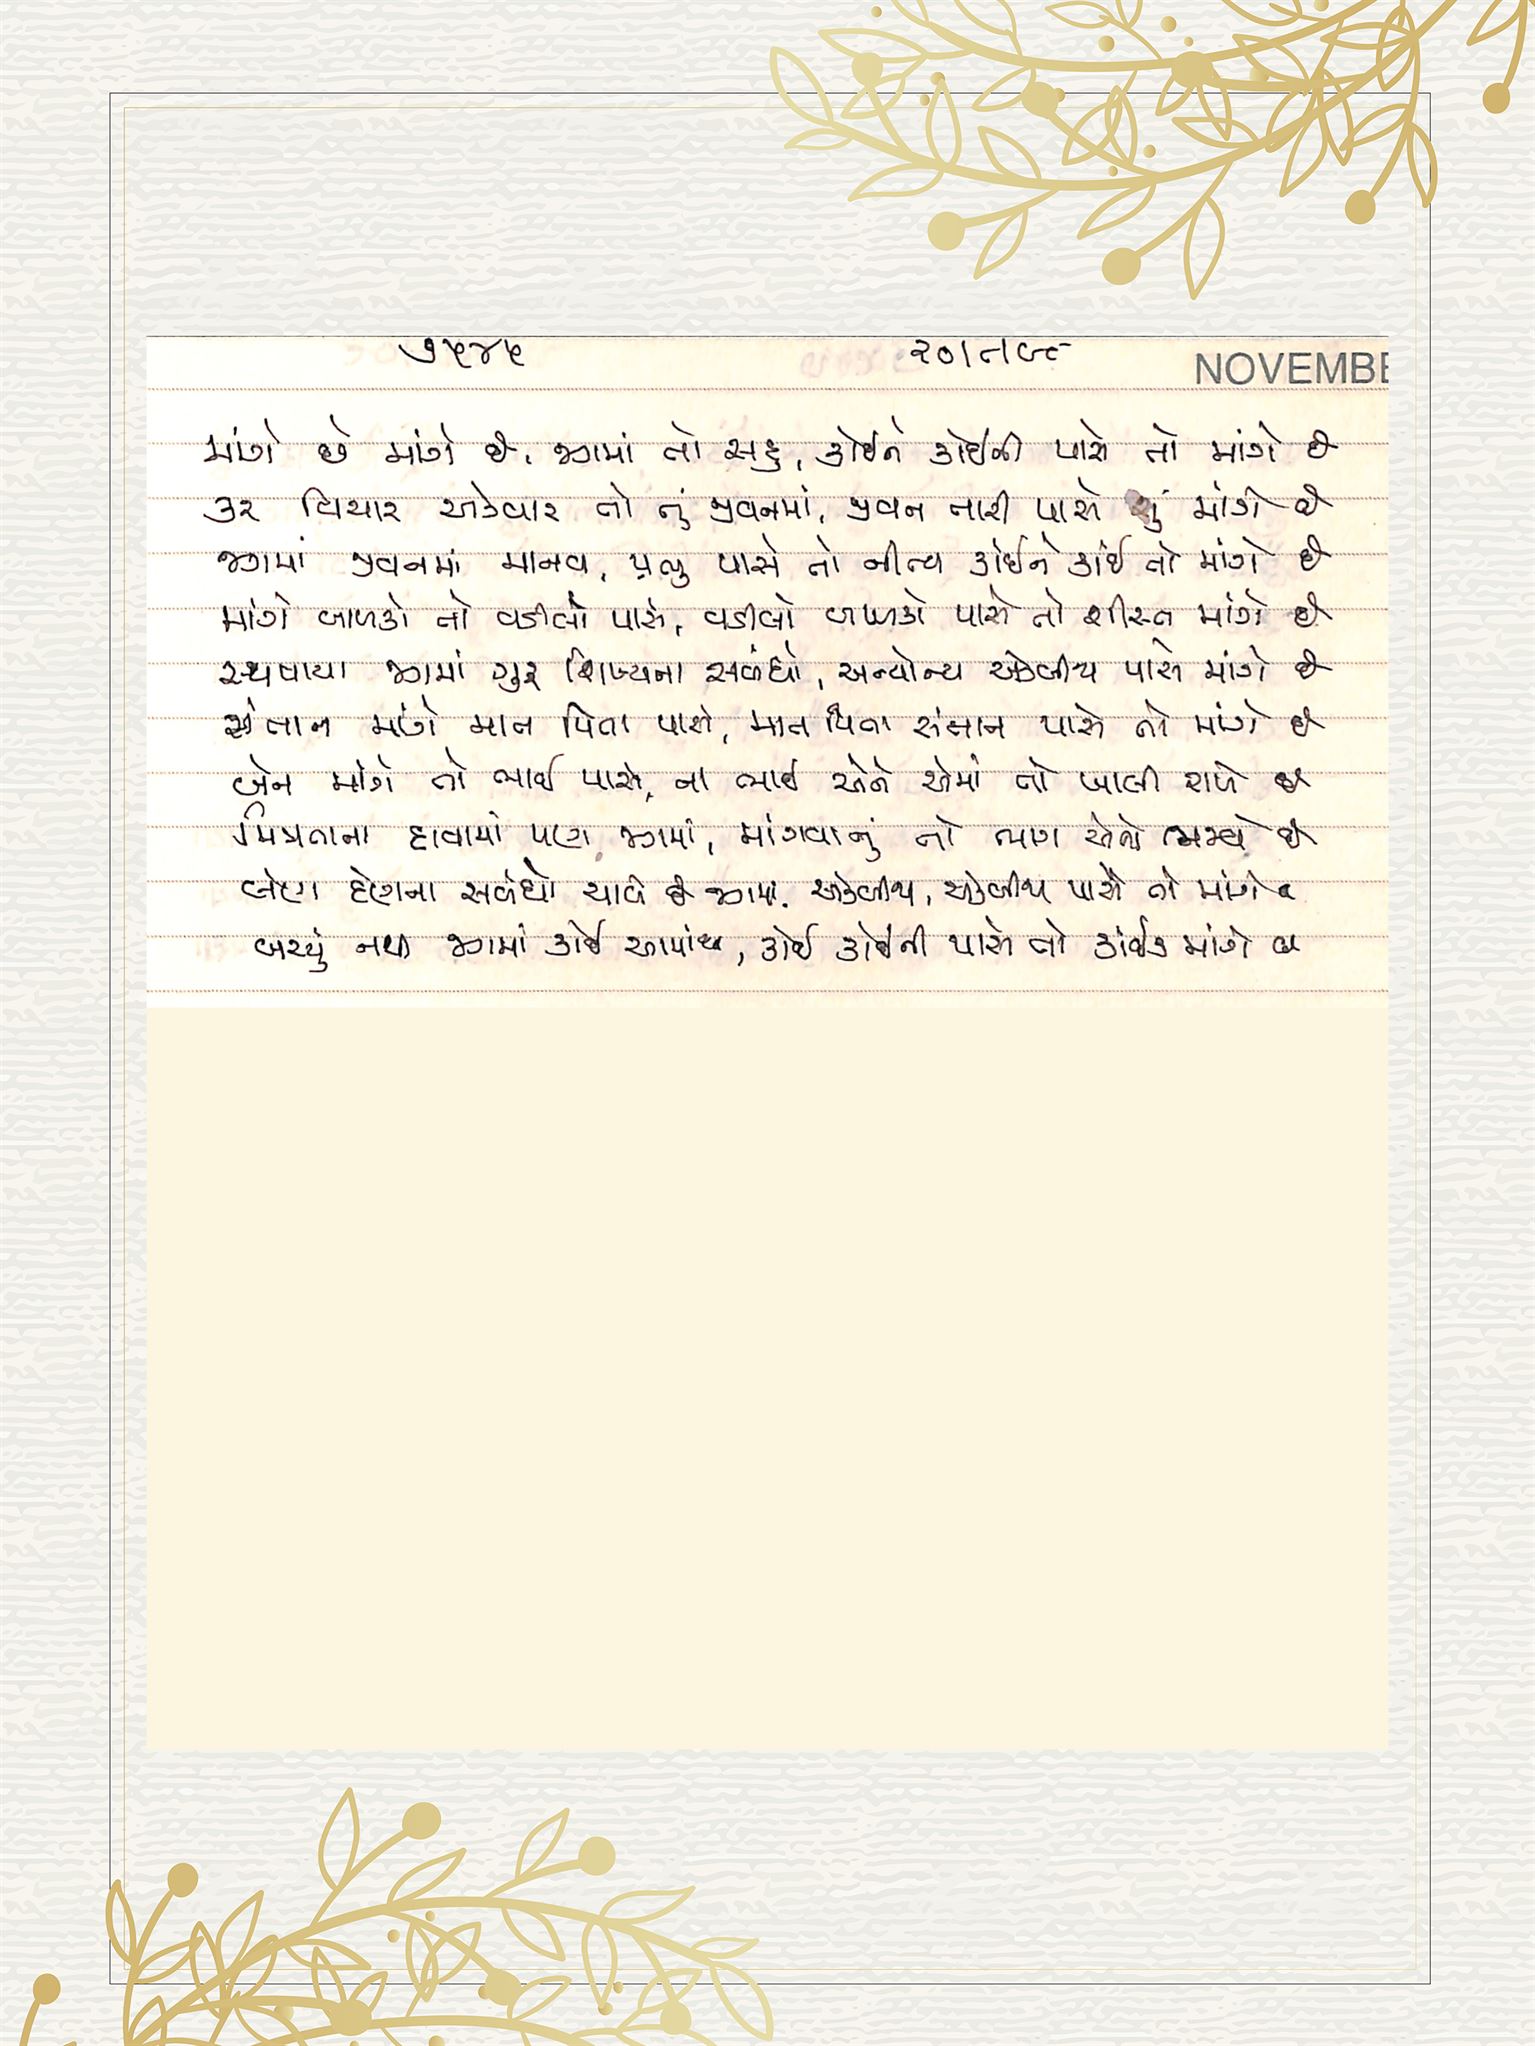 ૭૫૪૫ ૨૦/૮/૯૮ NOVEMBE
માંગે છે માંગે છે, જગમાં તો સહુ, કોઈને કોઈની પાસે તો માંગે છે
કર વિચાર એકવાર તો તું જીવનમાં, જીવન તારી પાસે શું માંગે છે
જગમાં જીવનમાં માનવ, પ્રભુ પાસે તો નીત્ય કોઈને કાંઈ તો માંગે છે
માંગે બાળકો તો વડીલો પાસે, વડીલો બાળકો પાસે તો શીસ્ત માંગે છે
સ્થપાયા જગમાં ગુરુ શિષ્યના સબંધો, અન્યોન્ય એકબીજા પાસે માંગે છે
સંતાન માંગે માત પિતા પાસે, માત પિતા સંતાન પાસે તો માંગે છે
બેન માંગે તો ભાઈ પાસે, ના ભાઈ એને એમાં તો ખાલી રાખે છે
મિત્રતાના દાવામાં પણ જગમાં, માંગવાનું તો ભાગ એનો ભજવે છે
લેણ દેણના સબંધો ચાલે છે જગમાં, એકબીજા, એકબીજા પાસે તો માંગે છે
બચ્યું નથી જગમાં કોઈ આમાંથી, કોઈ કોઈની પાસે તો કાંઈક માંગે છે